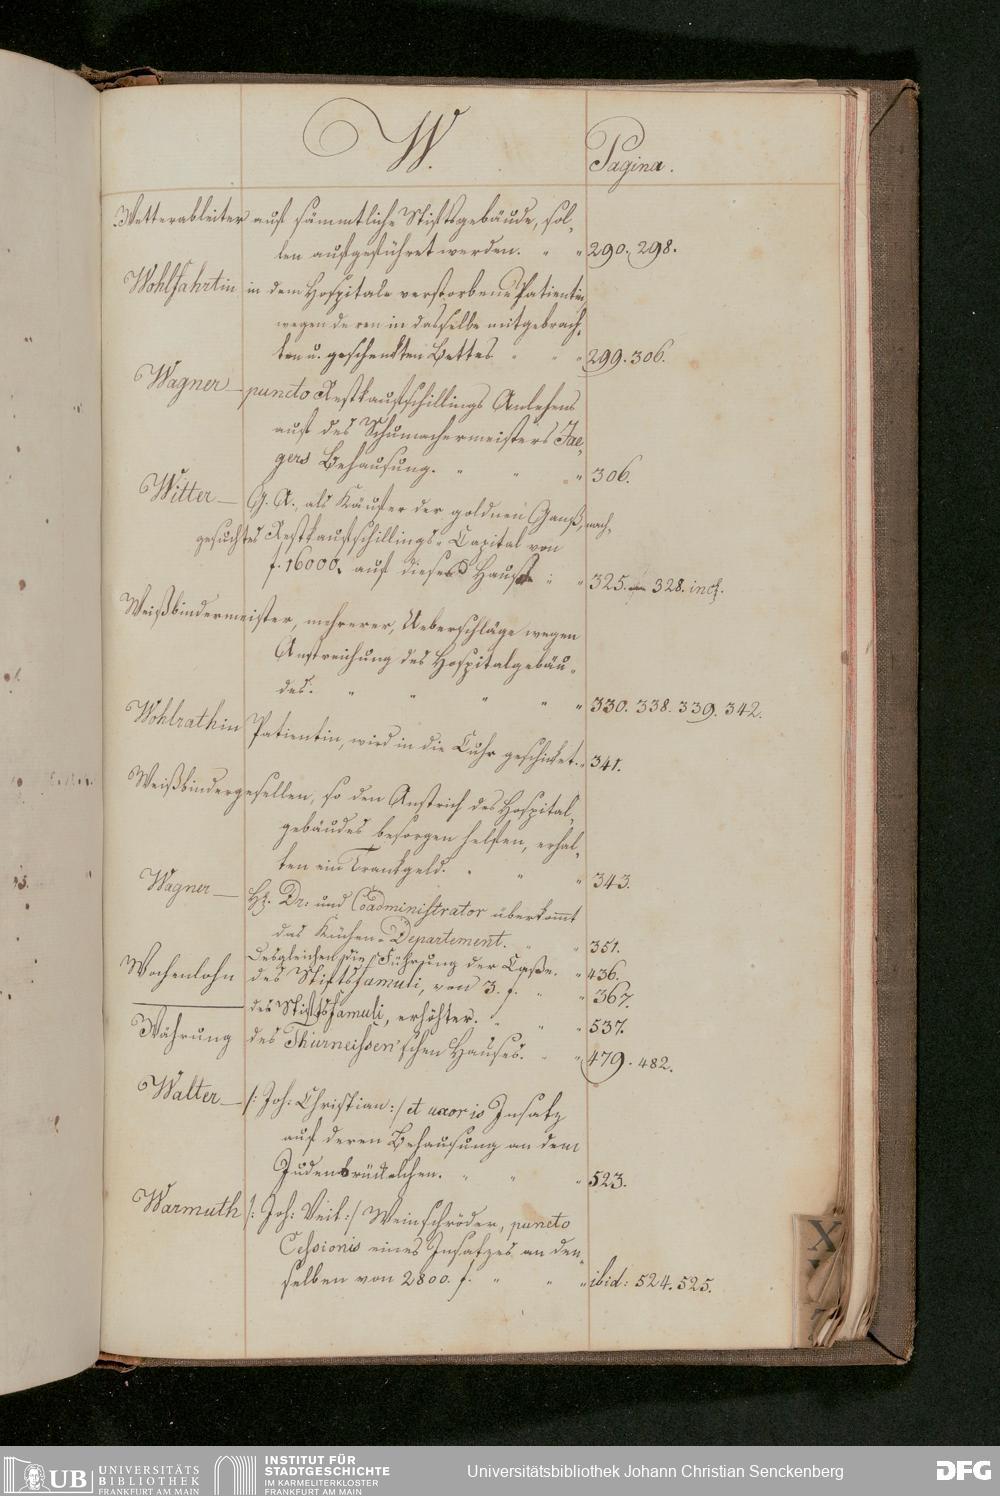 W.
Pagina.
Wetterableiter auf sämmtliche Stiftsgebäude, sol-
len aufgeführet werden. " " 290. 298.
Wohlfahrtin in dem Hospitale verstorbene Patientin,
wegen deren in dasselbe mitgebrach-
ten u. geschenkten Bettes " " " 299. 306.
Wagner — puncto Restkaufschillings Anlehens
auf des Schumachermeisters Jae-
gers Behausung. " " " 306.
Witter — G. A., als Käufer der goldnen Ganß, nach-
gesuchtes Restkaufschillings-Capital von
f. 16000. auf dieses Hauß " " 325. 328. incl.
Weißbindermeister, mehrerer, Ueberschläge wegen
Anstreichung des Hospitalgebäu-
des. " " " " " 330. 338. 339. 342.
Wohlrathin Patientin, wird in die Cuhr geschicket. " 341.
Weißbindergesellen, so den Anstrich des Hospital-
gebäudes besorgen helfen, erhal-
ten ein Trankgeld. " " " 343.
Wagner — H. Dr. und Coadministrator überkommt
das Küchen-Departement. " " 351.
Desgleichen die Führung der Casse. " 436.
Wochenlohn des Stiftsfamuli, von 3. f. " " 367.
— des Stiftsfamuli, erhöhter. " " " 537.
Währung des Thurneissen'schen Hauses. " " 479. 482.
Walter — /: Joh: Christian :/ et uxoris Insatz
auf deren Behausung an dem
Judenbrückelchen. " " " 523.
Warmuth /: Joh: Veit :/ Weinschröder, puncto
Cessionis eines Insatzes an den-
selben von 2800. f. " " " ibid: 524. 525.
X
UB
UNIVERSITÄTS
BIBLIOTHEK
FRANKFURT AM MAIN
INSTITUT FÜR
STADTGESCHICHTE
IM KARMELITERKLOSTER
FRANKFURT AM MAIN
Universitätsbibliothek Johann Christian Senckenberg
DFG